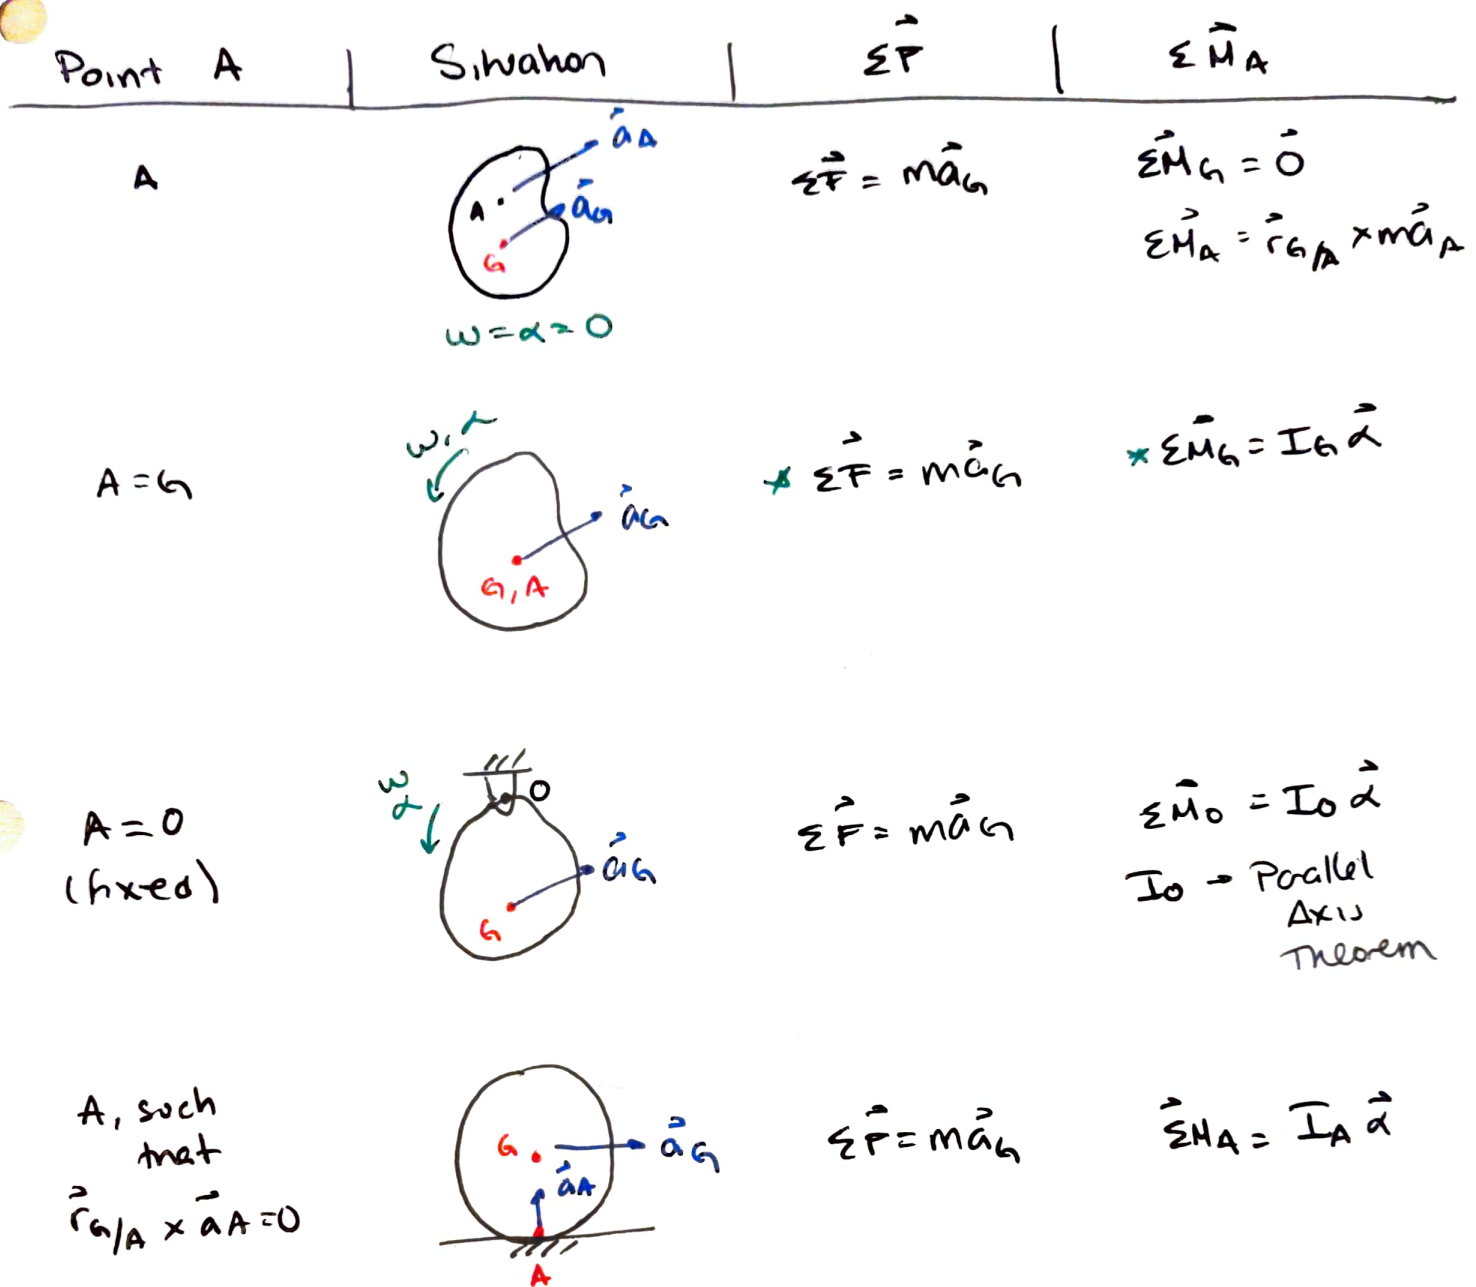 Point A | Situation | ΣF⃗ | ΣM⃗A
A
a⃗A
A
a⃗G
G
ω=α=0
ΣF⃗ = ma⃗G
ΣM⃗G = 0⃗
ΣM⃗A = r⃗G/A × ma⃗A
A=G
ω,α
a⃗G
G, A
* ΣF⃗ = ma⃗G
* ΣM⃗G = IG α⃗
A=O
(fixed)
ω
α
O
a⃗G
G
ΣF⃗ = ma⃗G
ΣM⃗O = IO α⃗
IO → Parallel
Axis
Theorem
A, such
that
r⃗G/A × a⃗A=0
G
a⃗G
a⃗A
A
ΣF⃗ = ma⃗G
ΣM⃗A = IA α⃗